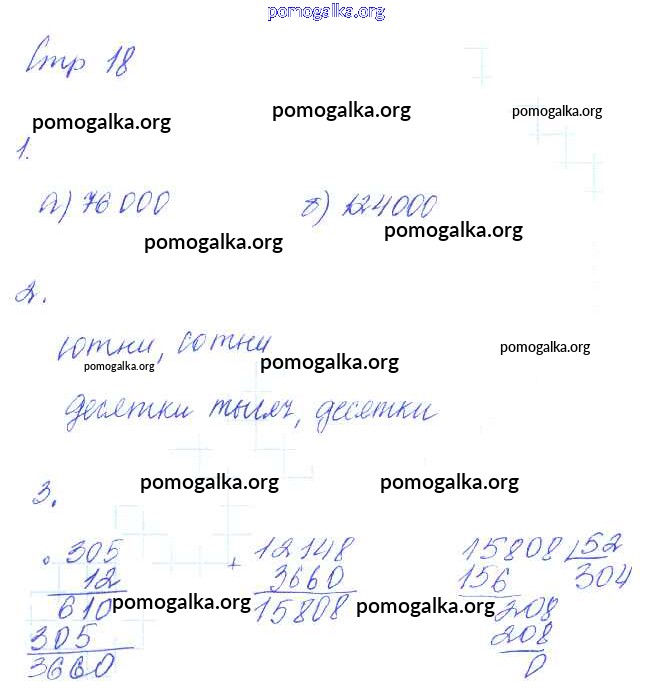 pomogalka.org
Стр 18
pomogalka.org pomogalka.org pomogalka.org
1.
а) 76 000 б) 124000
pomogalka.org pomogalka.org
2.
сотни, сотни
pomogalka.org pomogalka.org pomogalka.org
десятки тысяч, десятки
pomogalka.org pomogalka.org
3.
· 305 + 12148 15808 52
12 3660 156 304
610 pomogalka.org 15808 pomogalka.org 208
305 208
3660 0